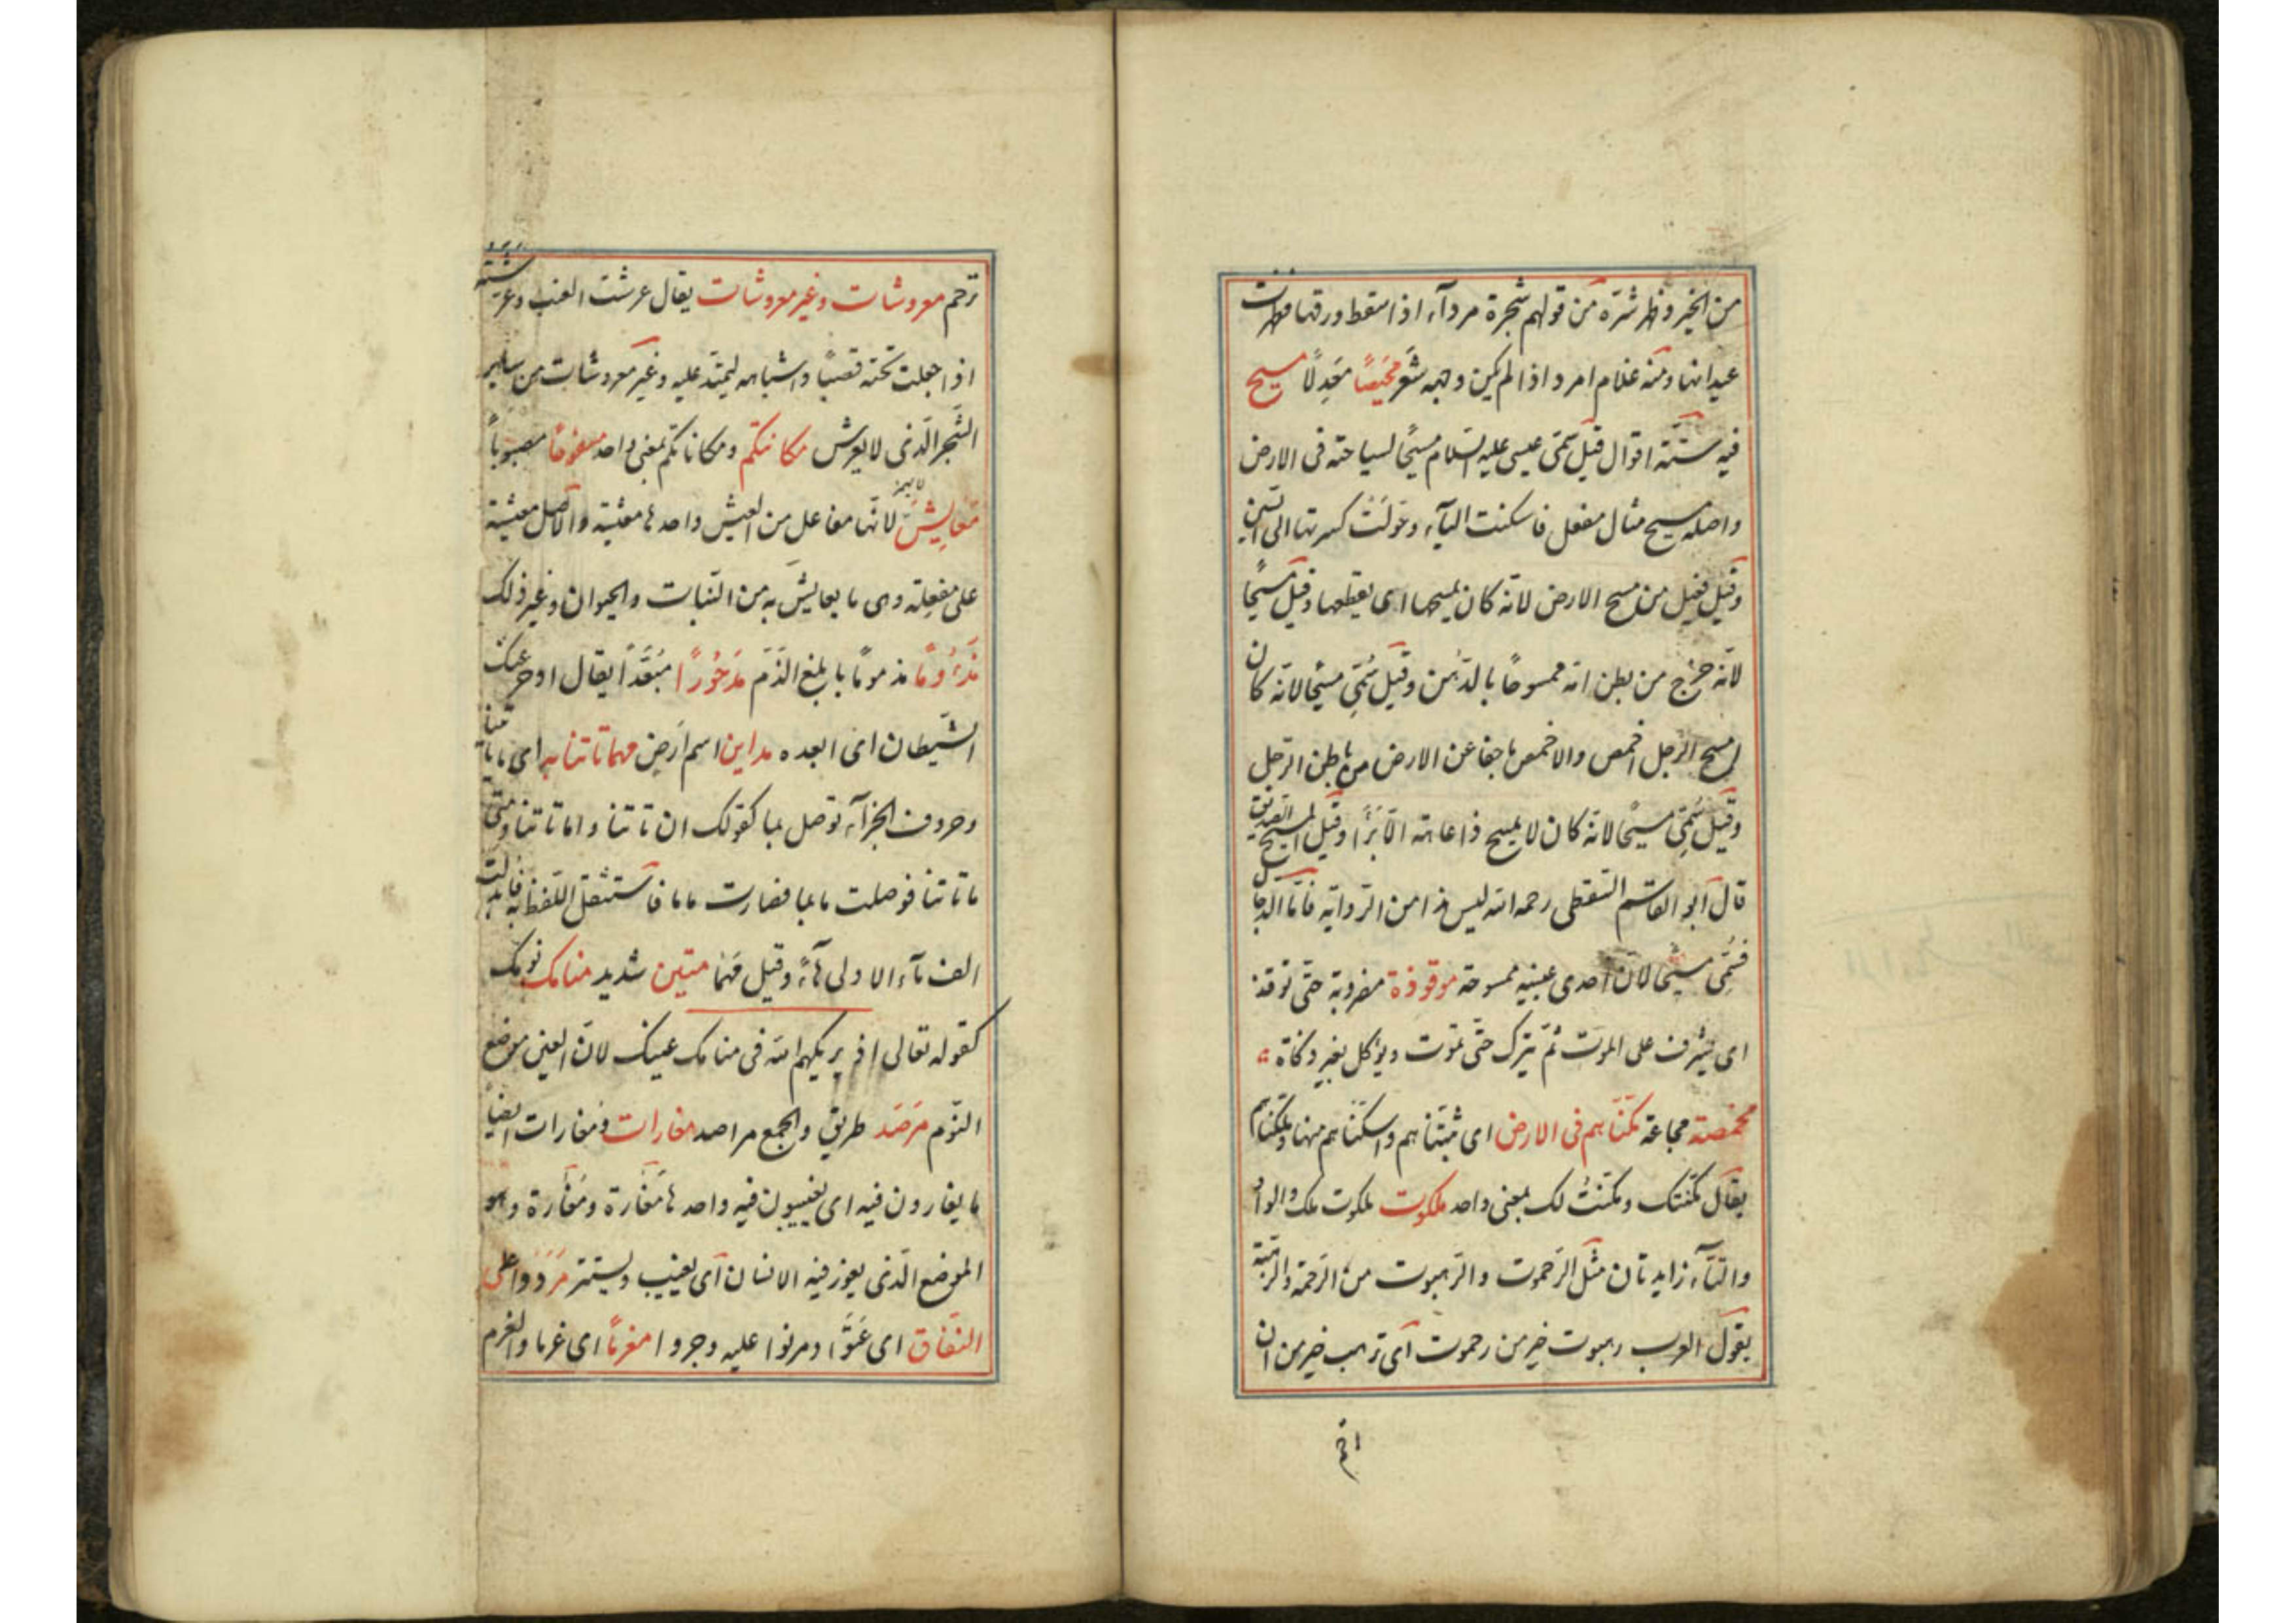 من الخير وظهر شره من قولهم شجرة مردآء اذا سقط ورقها فظهرت
عيدانها ومنه غلام امرد اذا لم يكن وجهه شعر محيصًا معدلًا مسيح
فيه ستّة اقوال قيل سمّى عيسى عليه السّلام مسيحًا لسياحته فى الارض
واصله مسيح مثال مفعل فاسكنت اليآء وحوّلت كسرتها الى السّين
وقيل فعيل من مسح الارض لانّه كان يمسحها اى يقطعها وقيل مسيحًا
لانّه خرج من بطن امّه ممسوحًا بالدّهن وقيل سُمّى مسيحًا لانّه كان
امسح الرّجل اخمص والاخمص ما جفا عن الارض من باطن الرّجل
وقيل سُمّى مسيحًا لانّه كان لا يمسح ذا عاهة الّا برأ وقيل المسيح الصّديق
قال ابو القاسم السّقطى رحمه الله ليس هذا من الرّواية فامّا الدّجّال
فسُمّى مسيحًا لانّ احدى عينيه ممسوحة موقوذة مضروبة حتّى توقذ
اى يشرف على الموت ثمّ يترك حتّى تموت ويؤكل بغير ذكاة
مخمصة مجاعة مكّنّاهم فى الارض اى ثبّتناهم واسكنّاهم منها وملّكناهم
يقال مكّنتك ومكّنتُ لك بمعنى واحد ملكوت ملكوت ملك والواو
والتّآء زايدتان مثل الرّحموت والرّهبوت من الرّحمة والرّهبة
يقول العرب رهبوت خير من رحموت اى ترهب خير من ان
ترحم معروشات وغير معروشات يقال عرشت العنب وعرّشته
اذا جعلت تحته قصبًا واشباهه ليمتدّ عليه وغير معروشات من ساير
الشّجر الّذى لا يعرش مكانتكم ومكاناتكم بمعنى واحد مسفوحًا مصبوبًا
معايش لانّها مفاعل من العيش واحدها معيشة والاصل معيشة
على مفعلة وهى ما يعايش به من النّبات والحيوان وغير ذلك
مذءومًا مذمومًا بابلغ الذّم مدحورًا مبعّدًا يقال ادحر عنك
الشّيطان اى ابعده مداين اسم ارض مهما تاتنا به اى ما تاتنا
وحروف الجزآء توصل بما كقولك ان تاتنا واما تاتنا ومتى
ما تاتنا فوصلت ما بما فصارت ماما فاستثقل اللّفظ به فابدلت
الف مآء الاولى هآءً وقيل مهما متين شديد منامك نومك
كقوله تعالى اذ يريكهم الله فى منامك عينك لانّ العين موضع
النّوم مرصَد طريق والجمع مراصد مغارات ومُغارات ايضًا
ما يغارون فيه اى يغيبون فيه واحدها مَغارة ومُغارة وهو
الموضع الّذى يغور فيه الانسان اى يغيب ويستتر مردوا على
النّفاق اى عتوا ومرنوا عليه وجروا مغرمًا اى غرما والغرم